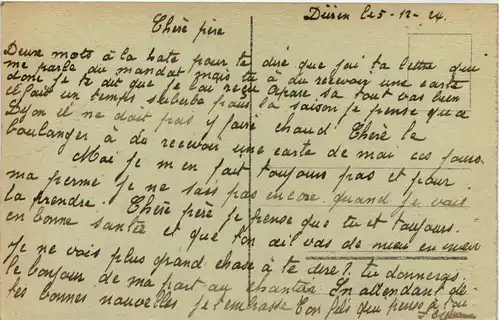 Düren le 5-12-24.
Chèrè père
Deux mots à la hate pour te dire que jai ta lettre qui
me parle du mandat mais tu à du recevoir une carte
donc je te dit que je lai reçu Apare sa tout vas bien
il fait un temps suberbe pour la saison je pense que a
Lyon il ne doit pas y faire chaud Chère le
boulanger à du recevoir une carte de moi ces jours.
Moi je m en fait toujours pas et pour
ma perme je ne sais pas encore quand je vais
la prendre. Chère père je pense que tu et toujours
en bonne santée et que ton œil vas de mieu en mieu
je ne vois plus grand chose à te dire ? tu donneras
le bonjour de ma part au chantier. En attendant de
tes bonnes nouvelles je t'embrasse Ton fils qui pense à toi